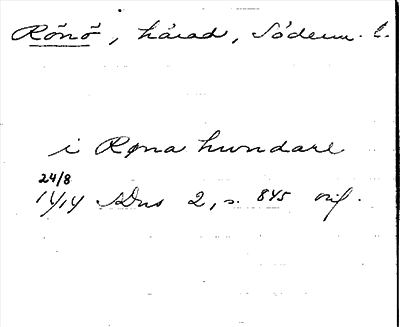 Rönö, härad, Söderm. l.
i Røna hundare
24/8
14/14 SDns 2, s. 845 orig.